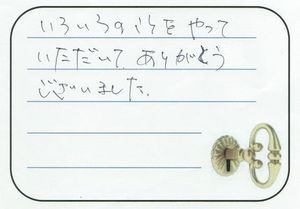 いろいろな事をやって
いただいて、ありがとう
ございました。